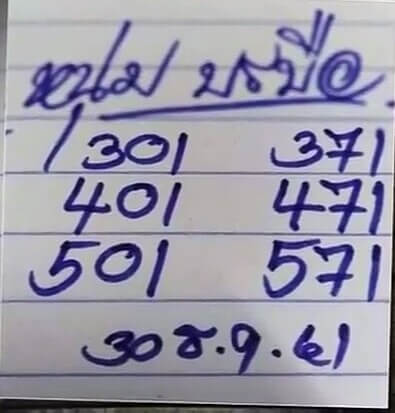 หนุ่ม บรบือ
301 371
401 471
501 571
30 ธ.ค. 61